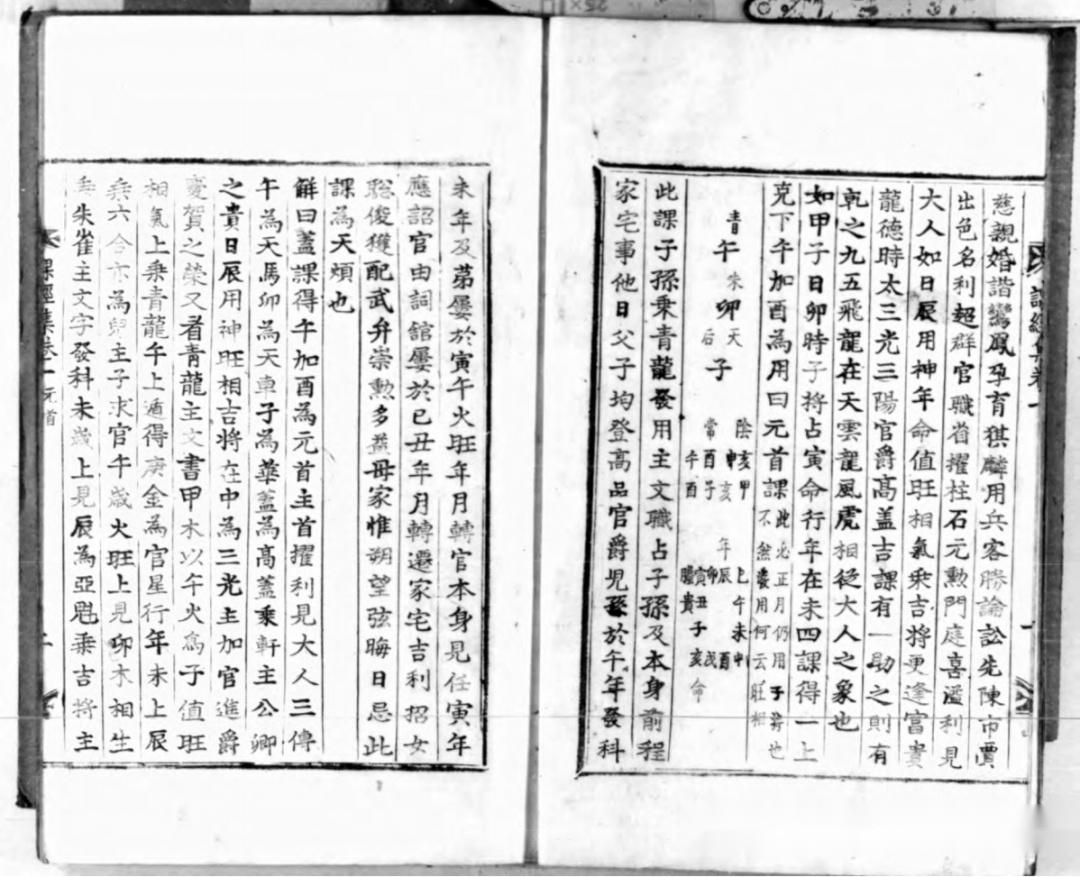 慈親婚諧鸞鳳孕育猉麟用兵客勝論訟先陳市賈
出色名利超群官職省擢柱石元勲門庭喜溢利見
大人如日辰用神年命值旺相氣乘吉將更逢富貴
龍德時太三光三陽官爵高盖吉課有一助之則有
乾之九五飛龍在天雲龍風虎相從大人之象也
如甲子日卯時子將占寅命行年在未四課得一上
克下午加酉為用曰元首課
此必正月仍用子將也
不然發用何云旺相
青午
朱卯天
后子
陰亥甲
申亥
常酉子
午酉
年
巳午未申
辰酉
卯戌
寅丑子亥
貴
命
此課子孫乘青龍發用主文職占子孫及本身前程
家宅事他日父子均登高品官爵児孫於午年發科
未年及第屢於寅午火旺年月轉官本身見任寅年
應詔官由詞舘屢於巳丑年月轉遷家宅吉利招女
聡俊獲配武弁崇勲多益母家惟朔望弦晦日忌此
課為天煩也
解曰蓋課得午加酉為元首主首擢利見大人三傳
午為天馬卯為天車子為華蓋為高蓋乘軒主公卿
之貴日辰用神旺相吉將在中為三光主加官進爵
慶賀之榮又看青龍主文書甲木以午火為子值旺
相氣上乘青龍午上遁得庚金為官星行年未上辰
乘六合亦為兒主子求官午歲火旺上見卯木相生
乘朱雀主文字發科未歲上見辰為亞魁乘吉將主
課經集卷一
元首
課經集卷一